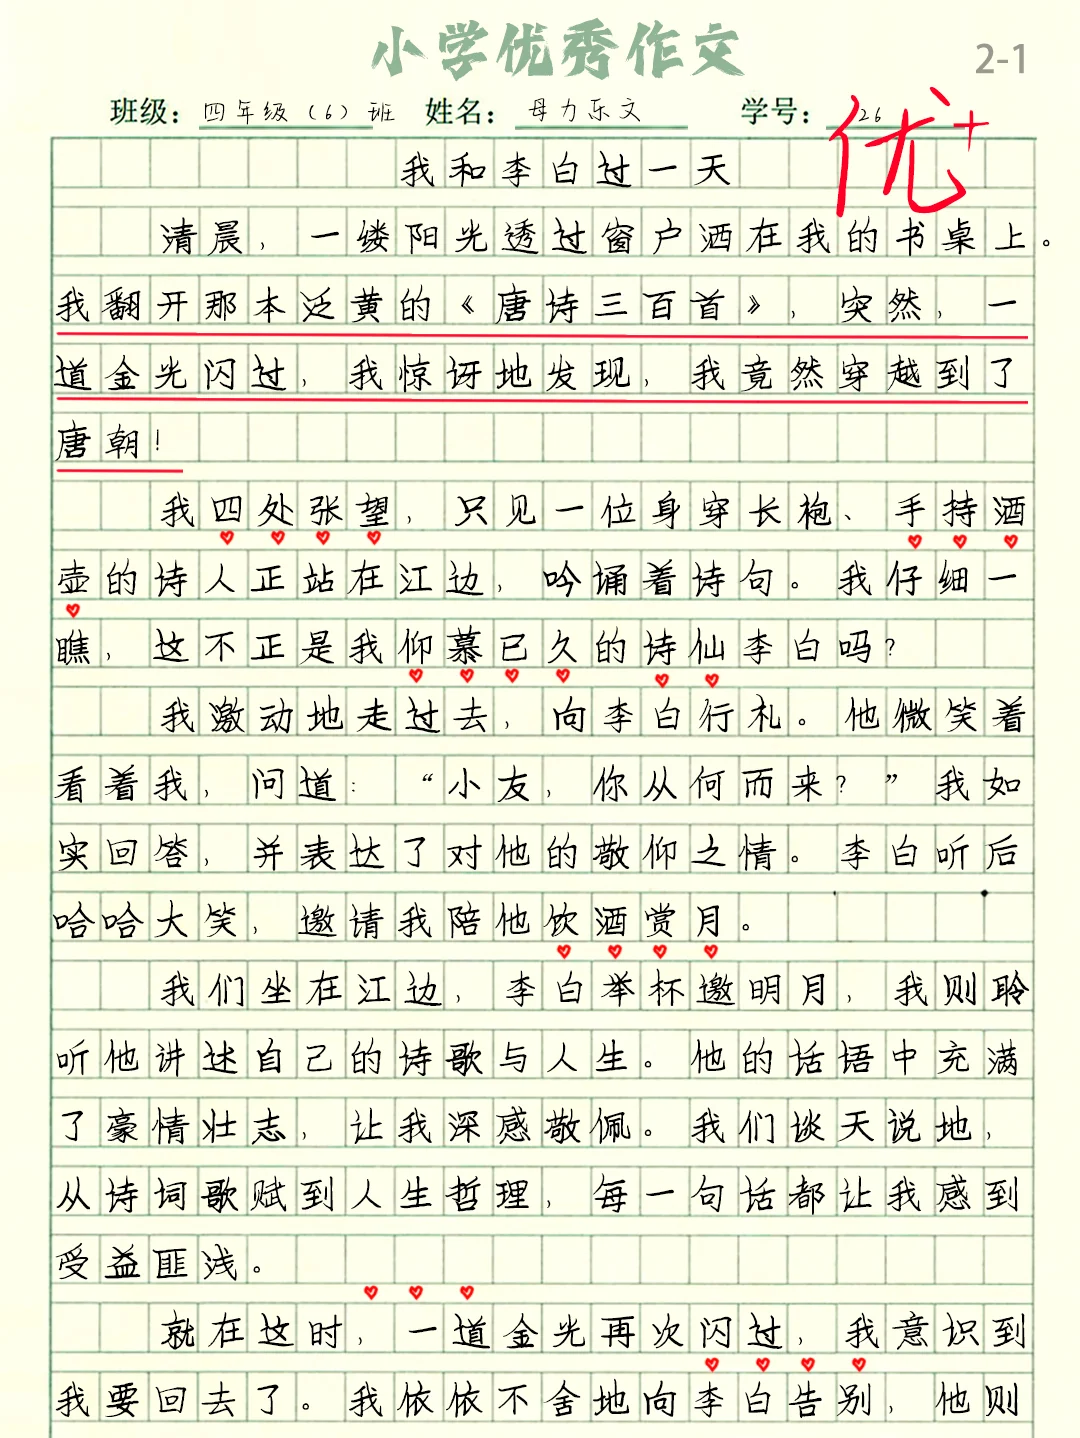 小学优秀作文
2-1
班级：四年级（6）班 姓名：母力乐文 学号：26
优+
我和李白过一天
清晨，一缕阳光透过窗户洒在我的书桌上。
我翻开那本泛黄的《唐诗三百首》，突然，一
道金光闪过，我惊讶地发现，我竟然穿越到了
唐朝！
我四处张望，只见一位身穿长袍、手持酒
壶的诗人正站在江边，吟诵着诗句。我仔细一
瞧，这不正是我仰慕已久的诗仙李白吗？
我激动地走过去，向李白行礼。他微笑着
看着我，问道：“小友，你从何而来？”我如
实回答，并表达了对他的敬仰之情。李白听后
哈哈大笑，邀请我陪他饮酒赏月。
我们坐在江边，李白举杯邀明月，我则聆
听他讲述自己的诗歌与人生。他的话语中充满
了豪情壮志，让我深感敬佩。我们谈天说地，
从诗词歌赋到人生哲理，每一句话都让我感到
受益匪浅。
就在这时，一道金光再次闪过，我意识到
我要回去了。我依依不舍地向李白告别，他则